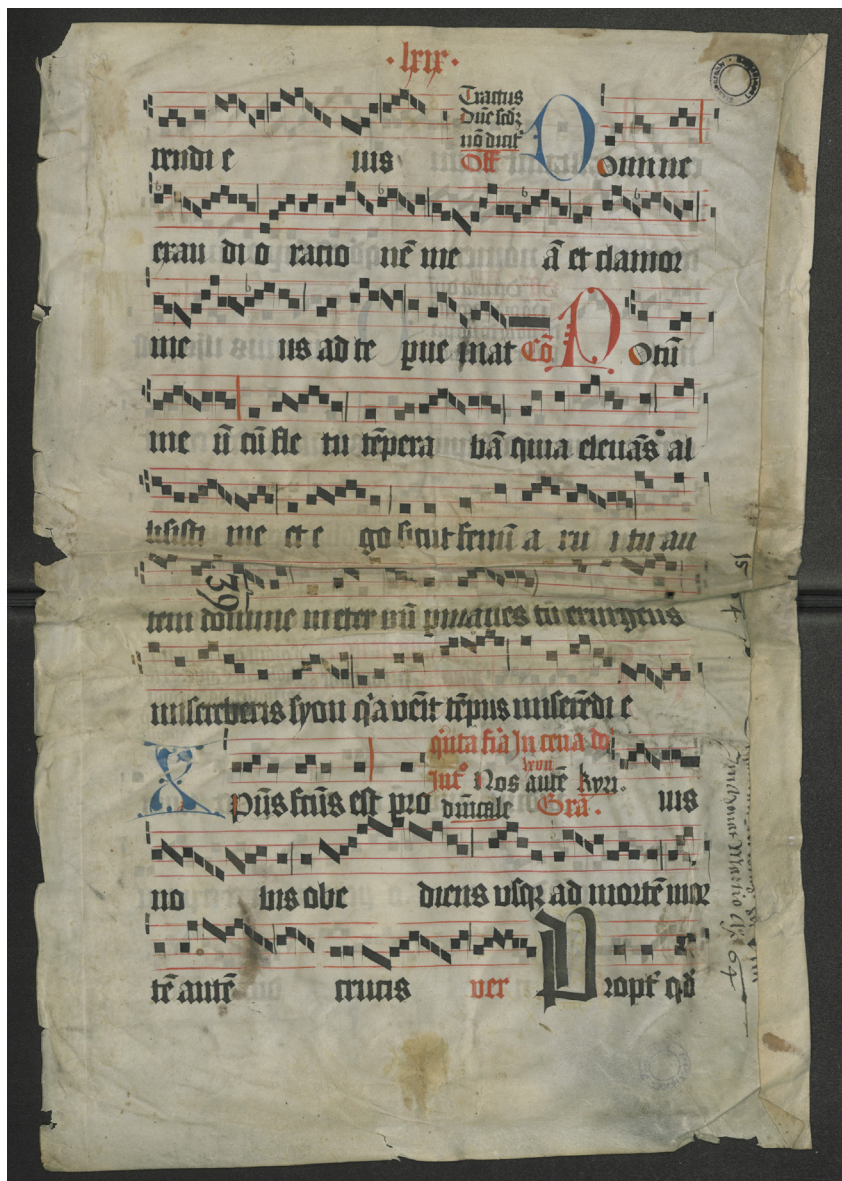 · lxix ·
Tractus
dñe scdȝ
nō dimit̄
rendi e ius Off Domine
exau di o ratio nē me ā et clamor
me us ad te pue niat Cō Potū
me ū cū fle tu tēpera bā quia eleuās al
lisisti me et e go sicut fenū a rui tu au
39
tem domine in eter nū pmanes tu exurgens
misereberis syon qa venit tēpus miserēdi e
quīta fīa In cena dō
Int̄ Nos autē kyri.
Xpūs fcūs est pro dn̄icale Gra. nis
no bis obe diens vsqȝ ad mortē mor
tē autē crucis ver Propt̄ qd